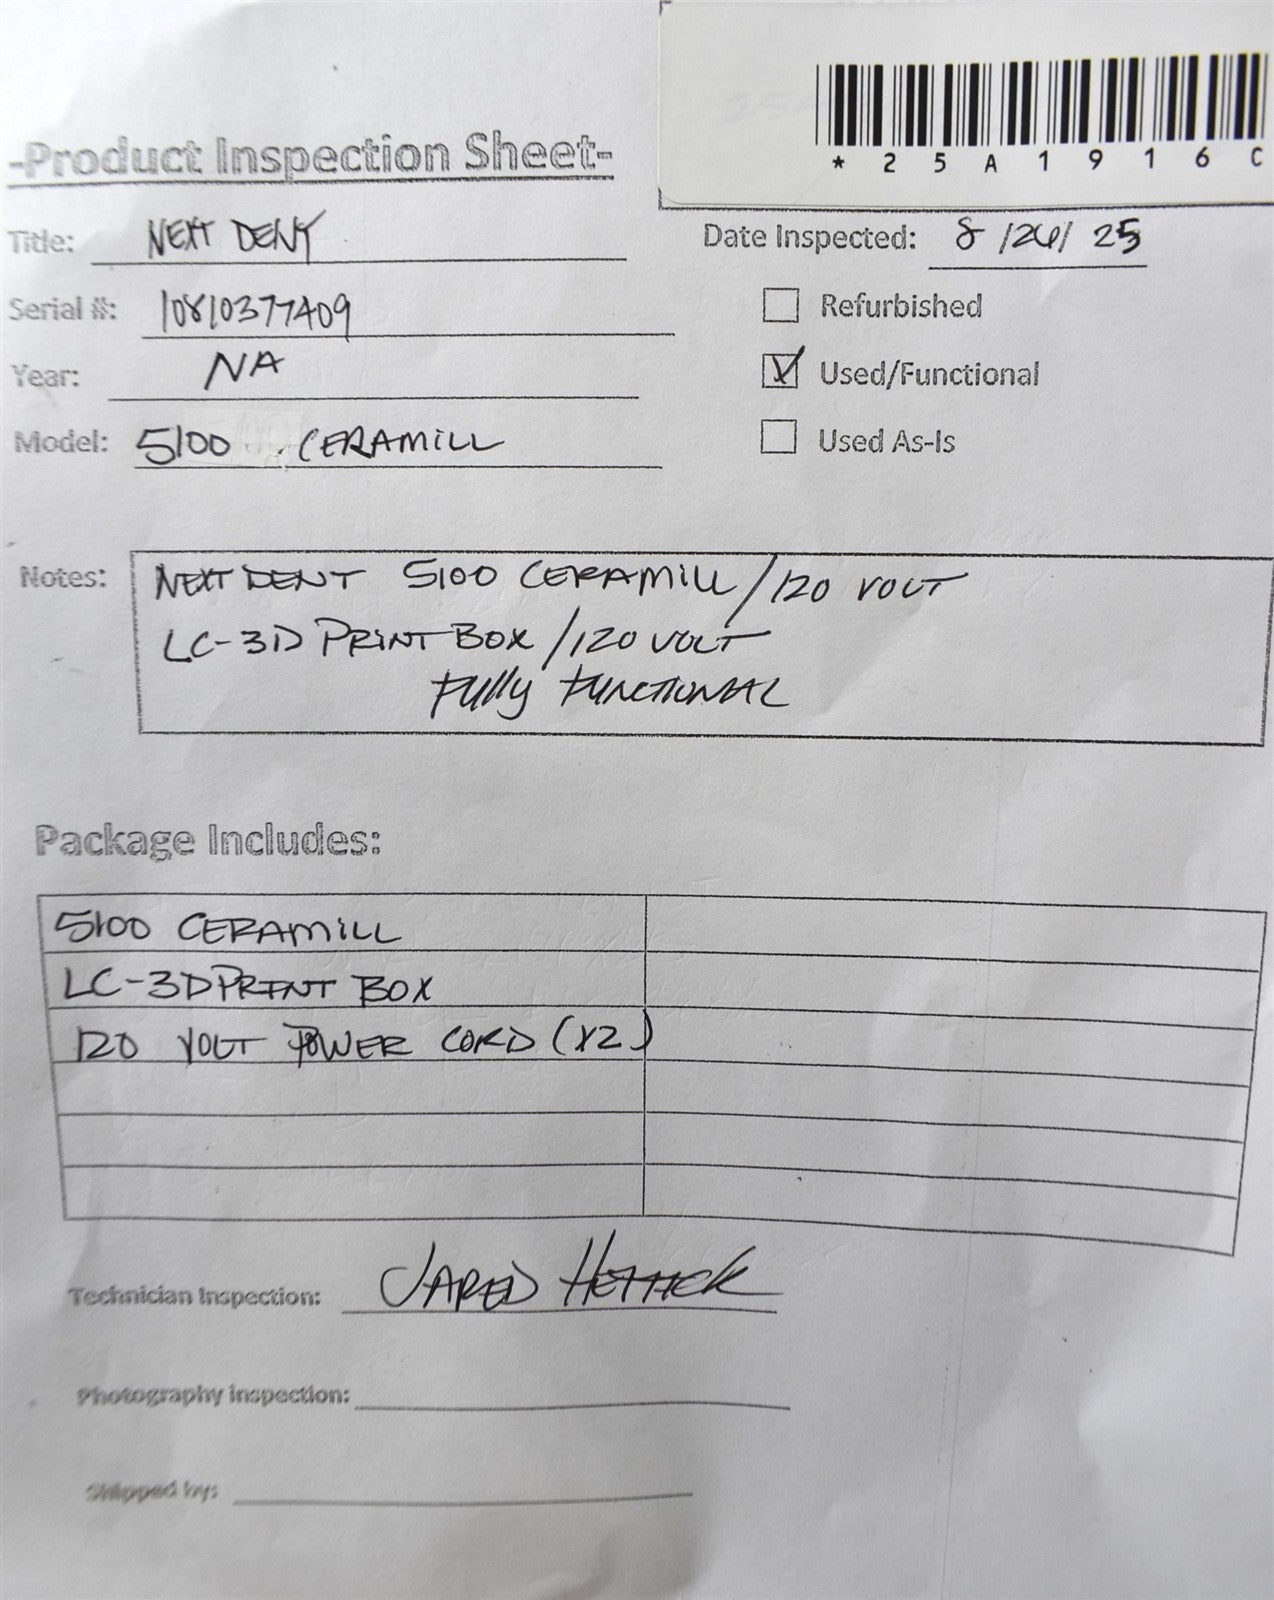 *25A1916C
-Product Inspection Sheet-
Title: NEXT DENT
Date Inspected: 8/26/25
Serial #: 10810377409
Refurbished
Year: NA
Used/Functional
Model: 5100 CERAMILL
Used As-Is
Notes: NEXT DENT 5100 CERAMILL/120 VOLT
LC-3D PRINT BOX/120 VOLT
Fully FUNCTIONAL
Package Includes:
5100 CERAMILL
LC-3D PRINT BOX
120 VOLT POWER CORD (X2)
Technician Inspection: JARED HETTICK
Photography Inspection:
Shipped by: